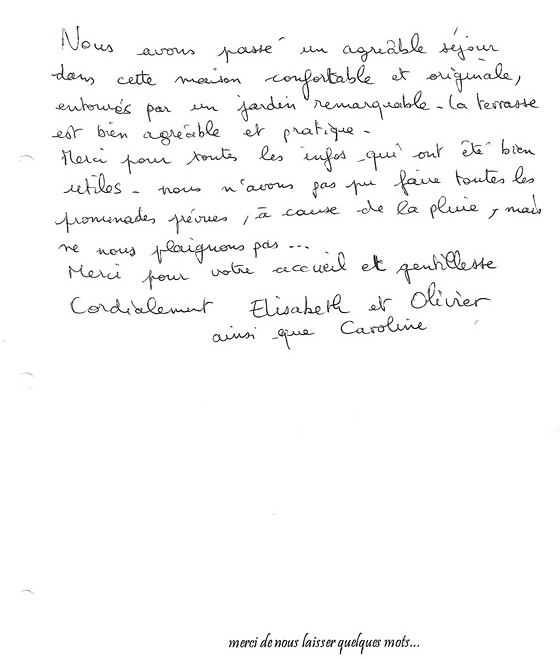 Nous avons passé un agréable séjour
dans cette maison confortable et originale,
entourés par un jardin remarquable - la terrasse
est bien agréable et pratique -
Merci pour toutes les infos qui ont été bien
utiles - nous n'avons pas pu faire toutes les
promenades prévues, à cause de la pluie, mais
ne nous plaignons pas ...
Merci pour votre accueil et gentillesse
Cordialement Elisabeth et Olivier
ainsi que Caroline
merci de nous laisser quelques mots...